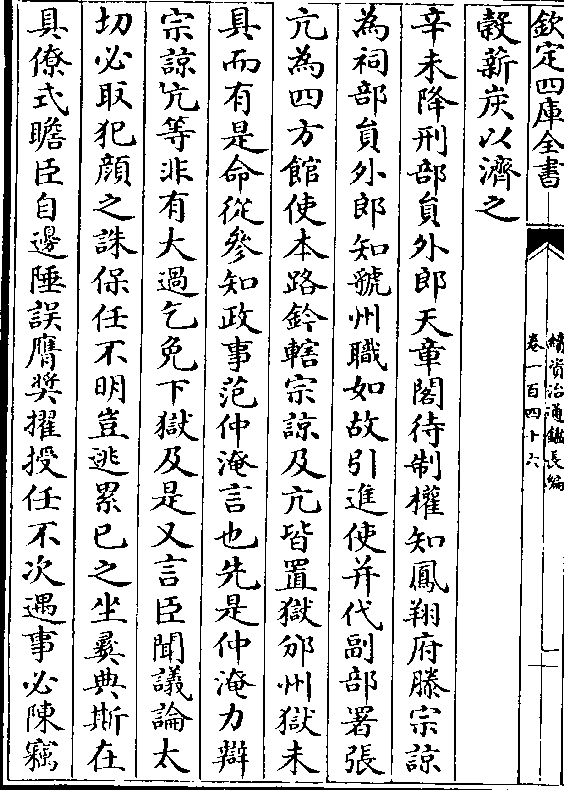 欽定四庫全書
續資治通鑑長編
卷一百四十六
一
穀薪炭以濟之
辛未降刑部員外郎天章閣待制權知鳳翔府滕宗諒
為祠部員外郎知虢州職如故引進使并代副部署張
亢為四方館使本路鈐轄宗諒及亢皆置獄邠州獄未
具而有是命從參知政事范仲淹言也先是仲淹力辯
宗諒亢等非有大過乞免下獄及是又言臣聞議論太
切必取犯顔之誅保任不明豈逃累已之坐彛典斯在
具僚式瞻臣自邊陲誤膺奬擢授任不次遇事必陳竊